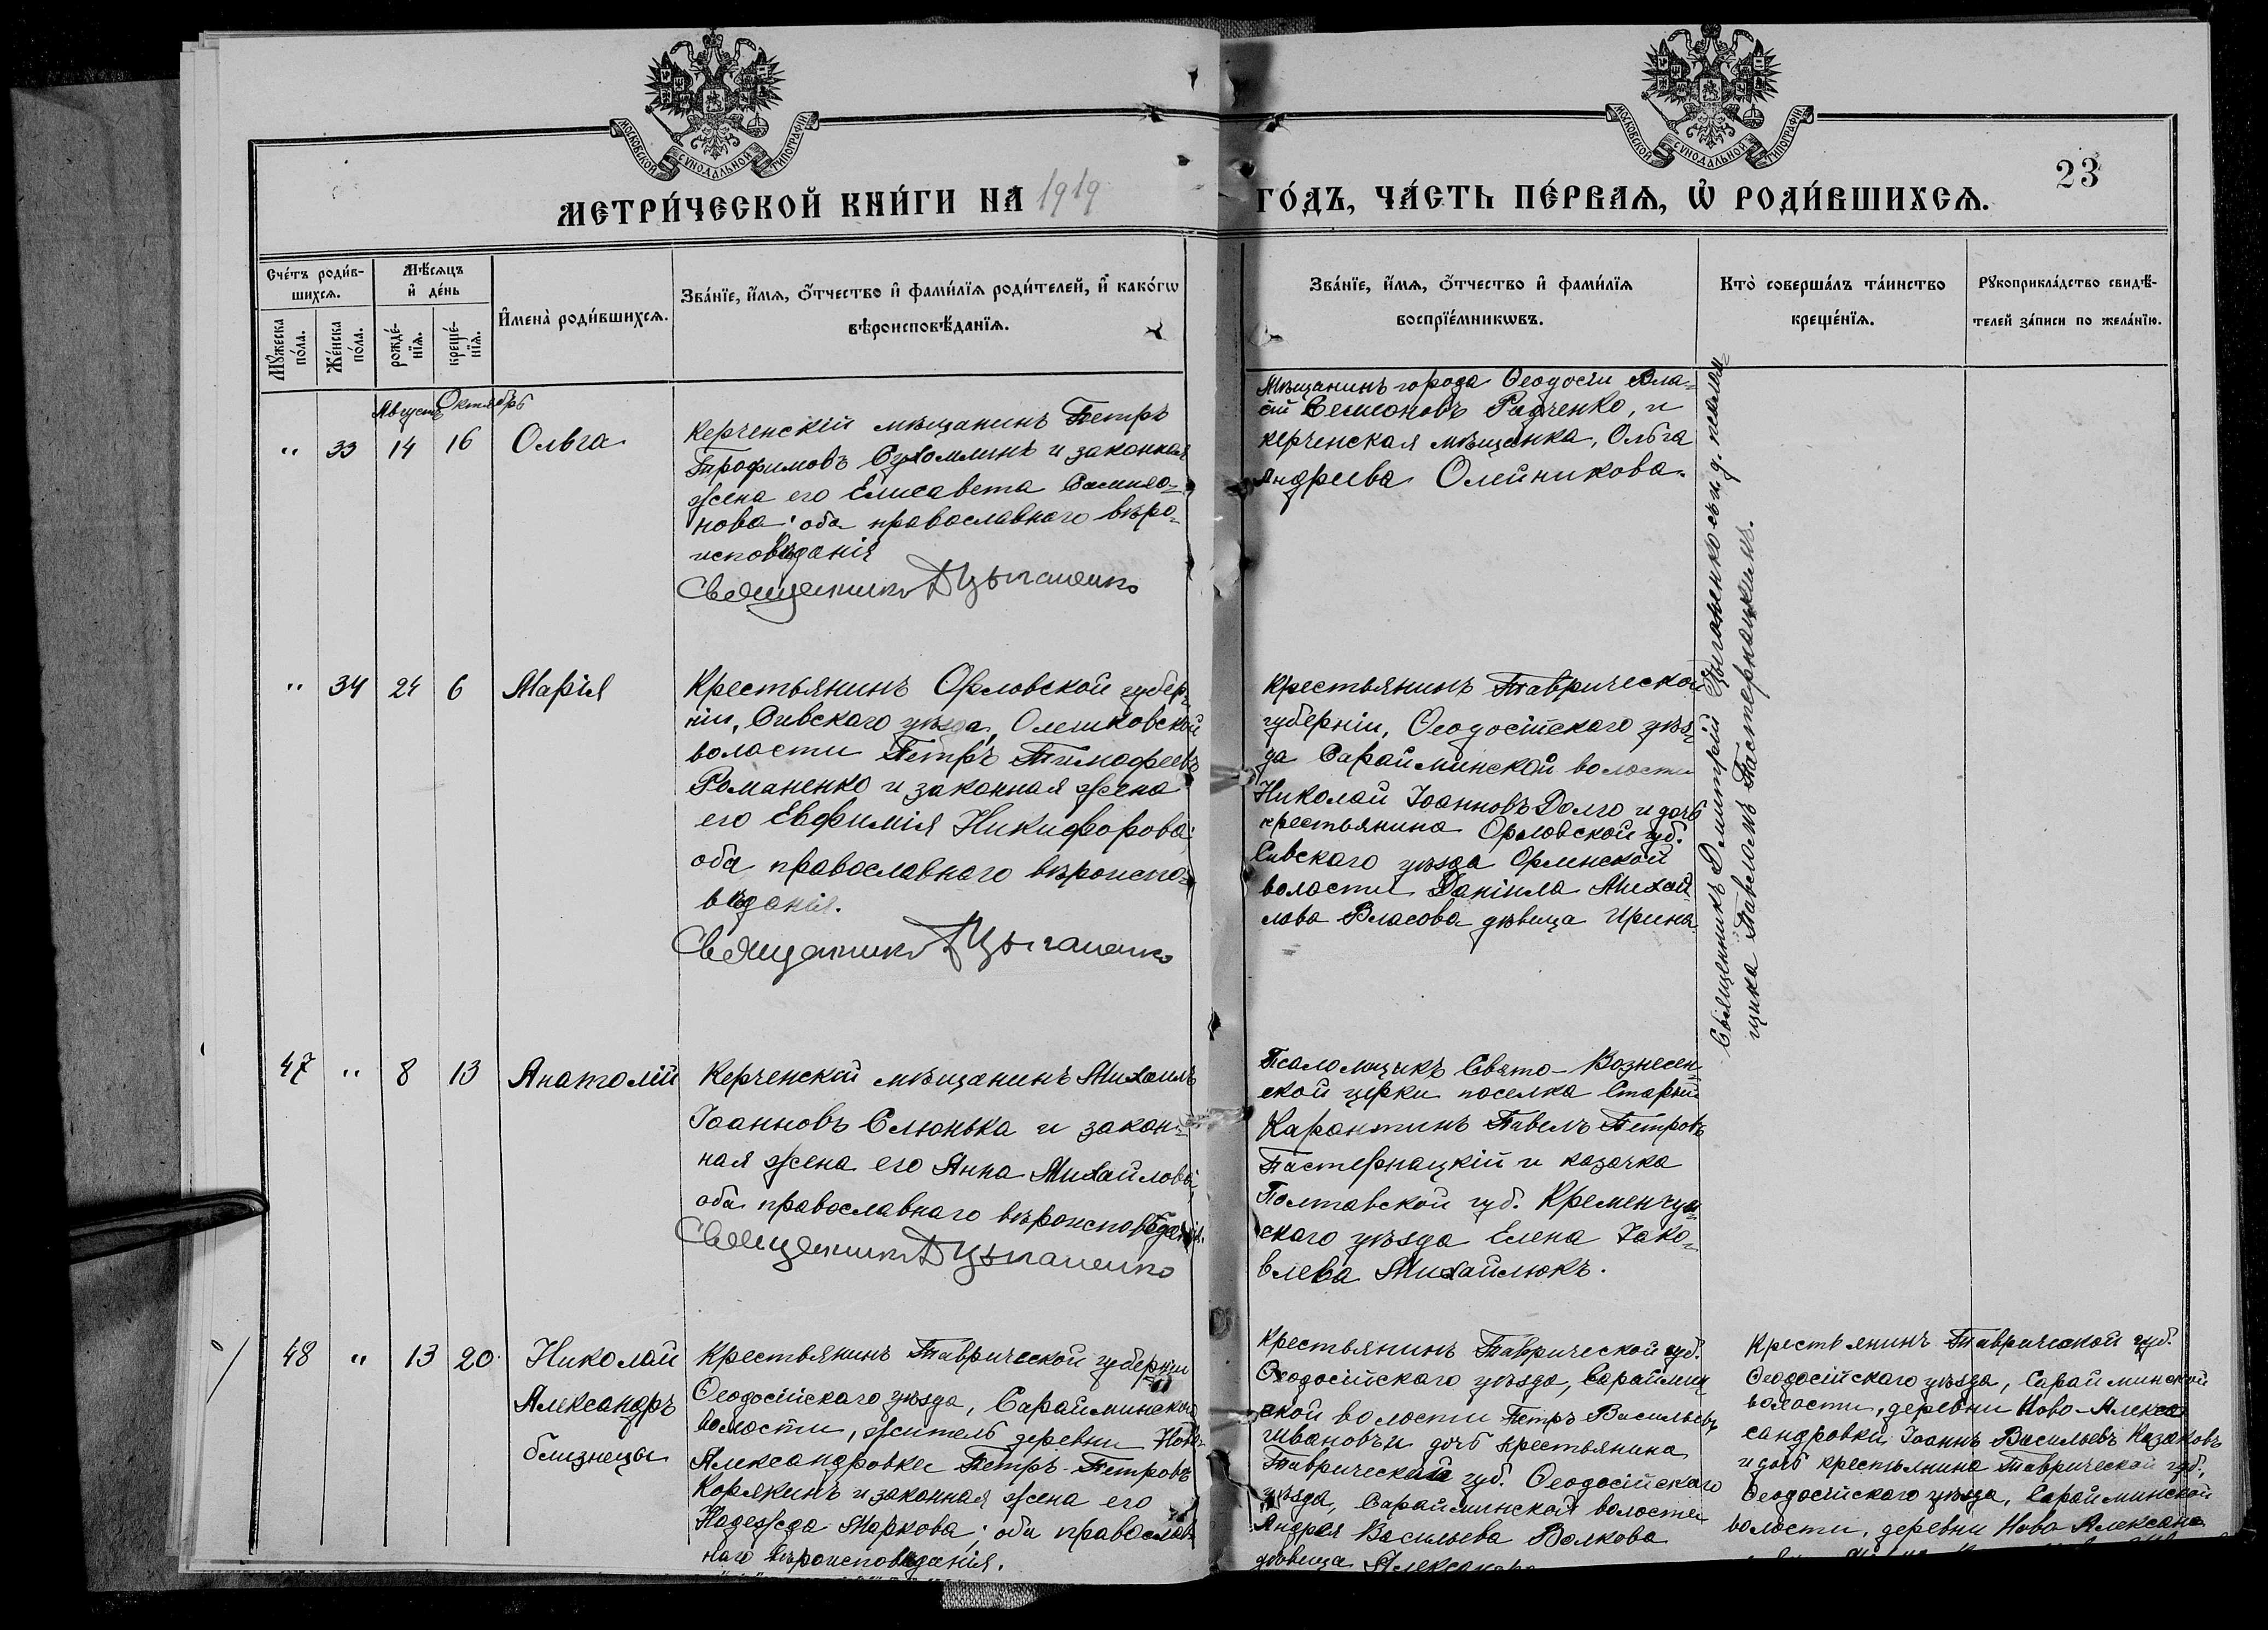 МОСКОВСКОЙ СѴНОДАЛЬНОЙ ТИПОГРАФІИ
МОСКОВСКОЙ СѴНОДАЛЬНОЙ ТИПОГРАФІИ
23
МЕТРИ́ЧЕСКОЙ КНИ́ГИ НА 1919
ГО́ДЪ, ЧА́СТЬ ПЕ́РВАѦ, Ѡ҆ РОДИ́ВШИХСѦ.
Сче́тъ роди́в-
шихсѧ.
Мꙋ́жеска
по́ла.
Же́нска
по́ла.
Мѣ́сѧцъ
и҆ де́нь
рожде́-
нїѧ.
креще́-
нїѧ.
И҆мена̀ роди́вшихсѧ.
Зва́нїе, и҆́мѧ, ѻ҆́тчество и҆ фами́лїѧ роди́телей, и҆ како́гѡ
вѣроисповѣ́данїѧ.
Зва́нїе, и҆́мѧ, ѻ҆́тчество и҆ фами́лїѧ
воспрїе́мникѡвъ.
Кто̀ соверша́лъ та́инство
креще́нїѧ.
Рꙋкоприкла́дство свидѣ́-
телей за́писи по жела́нїю.
Августъ Октябрь
" 33 14 16 Ольга
Керченскій мѣщанинъ Петръ
Трофимовъ Сухомлинъ и законная
жена его Елисавета Самило-
нова; оба православнаго вѣро-
исповѣданія
Священникъ Д Цыганенко
Мѣщанинъ города Ѳеодосіи Вла-
сій Семеоновъ Радченко, и
керченская мѣщанка, Ольга
Андреева Олейникова.
Священникъ Димитрій Цыганенко съ и. д. псалом-
щика Павломъ Пастернацкимъ.
" 34 24 6 Марія
Крестьянинъ Орловской губер-
ніи, Сивскаго уѣзда, Олешковской
волости Петръ Тимоѳеевъ
Романенко и законная жена
его Евфимія Никифорова;
оба православнаго вѣроиспо-
вѣданія.
Священникъ Д Цыганенко
Крестьянинъ Таврической
губерніи, Ѳеодосійскаго уѣз-
да Сарайминской волости
Николай Іоанновъ Долго и дочь
крестьянина Орловской губ.
Сивскаго уѣзда Орлинской
волости Даніила Михай-
лова Власова дѣвица Ирина.
47 " 8 13 Анатолій
Керченскій мѣщанинъ Михаилъ
Іоанновъ Слюнька и закон-
ная жена его Анна Михайлова;
оба православнаго вѣроисповѣданія.
Священникъ Д Цыганенко
Псаломщикъ Свято-Вознесен-
ской церкви поселка Старый
Карантинъ Павелъ Петровъ
Пастернацкій и казачка
Полтавской губ. Кременчуг-
скаго уѣзда Елена Іако-
влева Михайлюкъ.
48 " 13 20 Николай
Александръ
близнецы
Крестьянинъ Таврической губерніи
Ѳеодосійскаго уѣзда, Сарайминской
волости, житель деревни Ново-
Александровки Петръ Петровъ
Корякинъ и законная жена его
Надежда Маркова; оба православ-
наго вѣроисповѣданія.
Крестьянинъ Таврической губ.
Ѳеодосійскаго уѣзда, Сараймин-
ской волости Петръ Васильевъ
Ивановъ и дочь крестьянина
Таврической губ. Ѳеодосійскаго
уѣзда, Сарайминской волости
Андрея Васильева Волкова
дѣвица Александра
Крестьянинъ Таврической губ.
Ѳеодосійскаго уѣзда, Сарайминской
волости, деревни Ново-Алек-
сандровки, Іоаннъ Васильевъ Казаковъ
и дочь крестьянина Таврической губ.,
Ѳеодосійскаго уѣзда, Сарайминской
волости, деревни Ново Алексан-